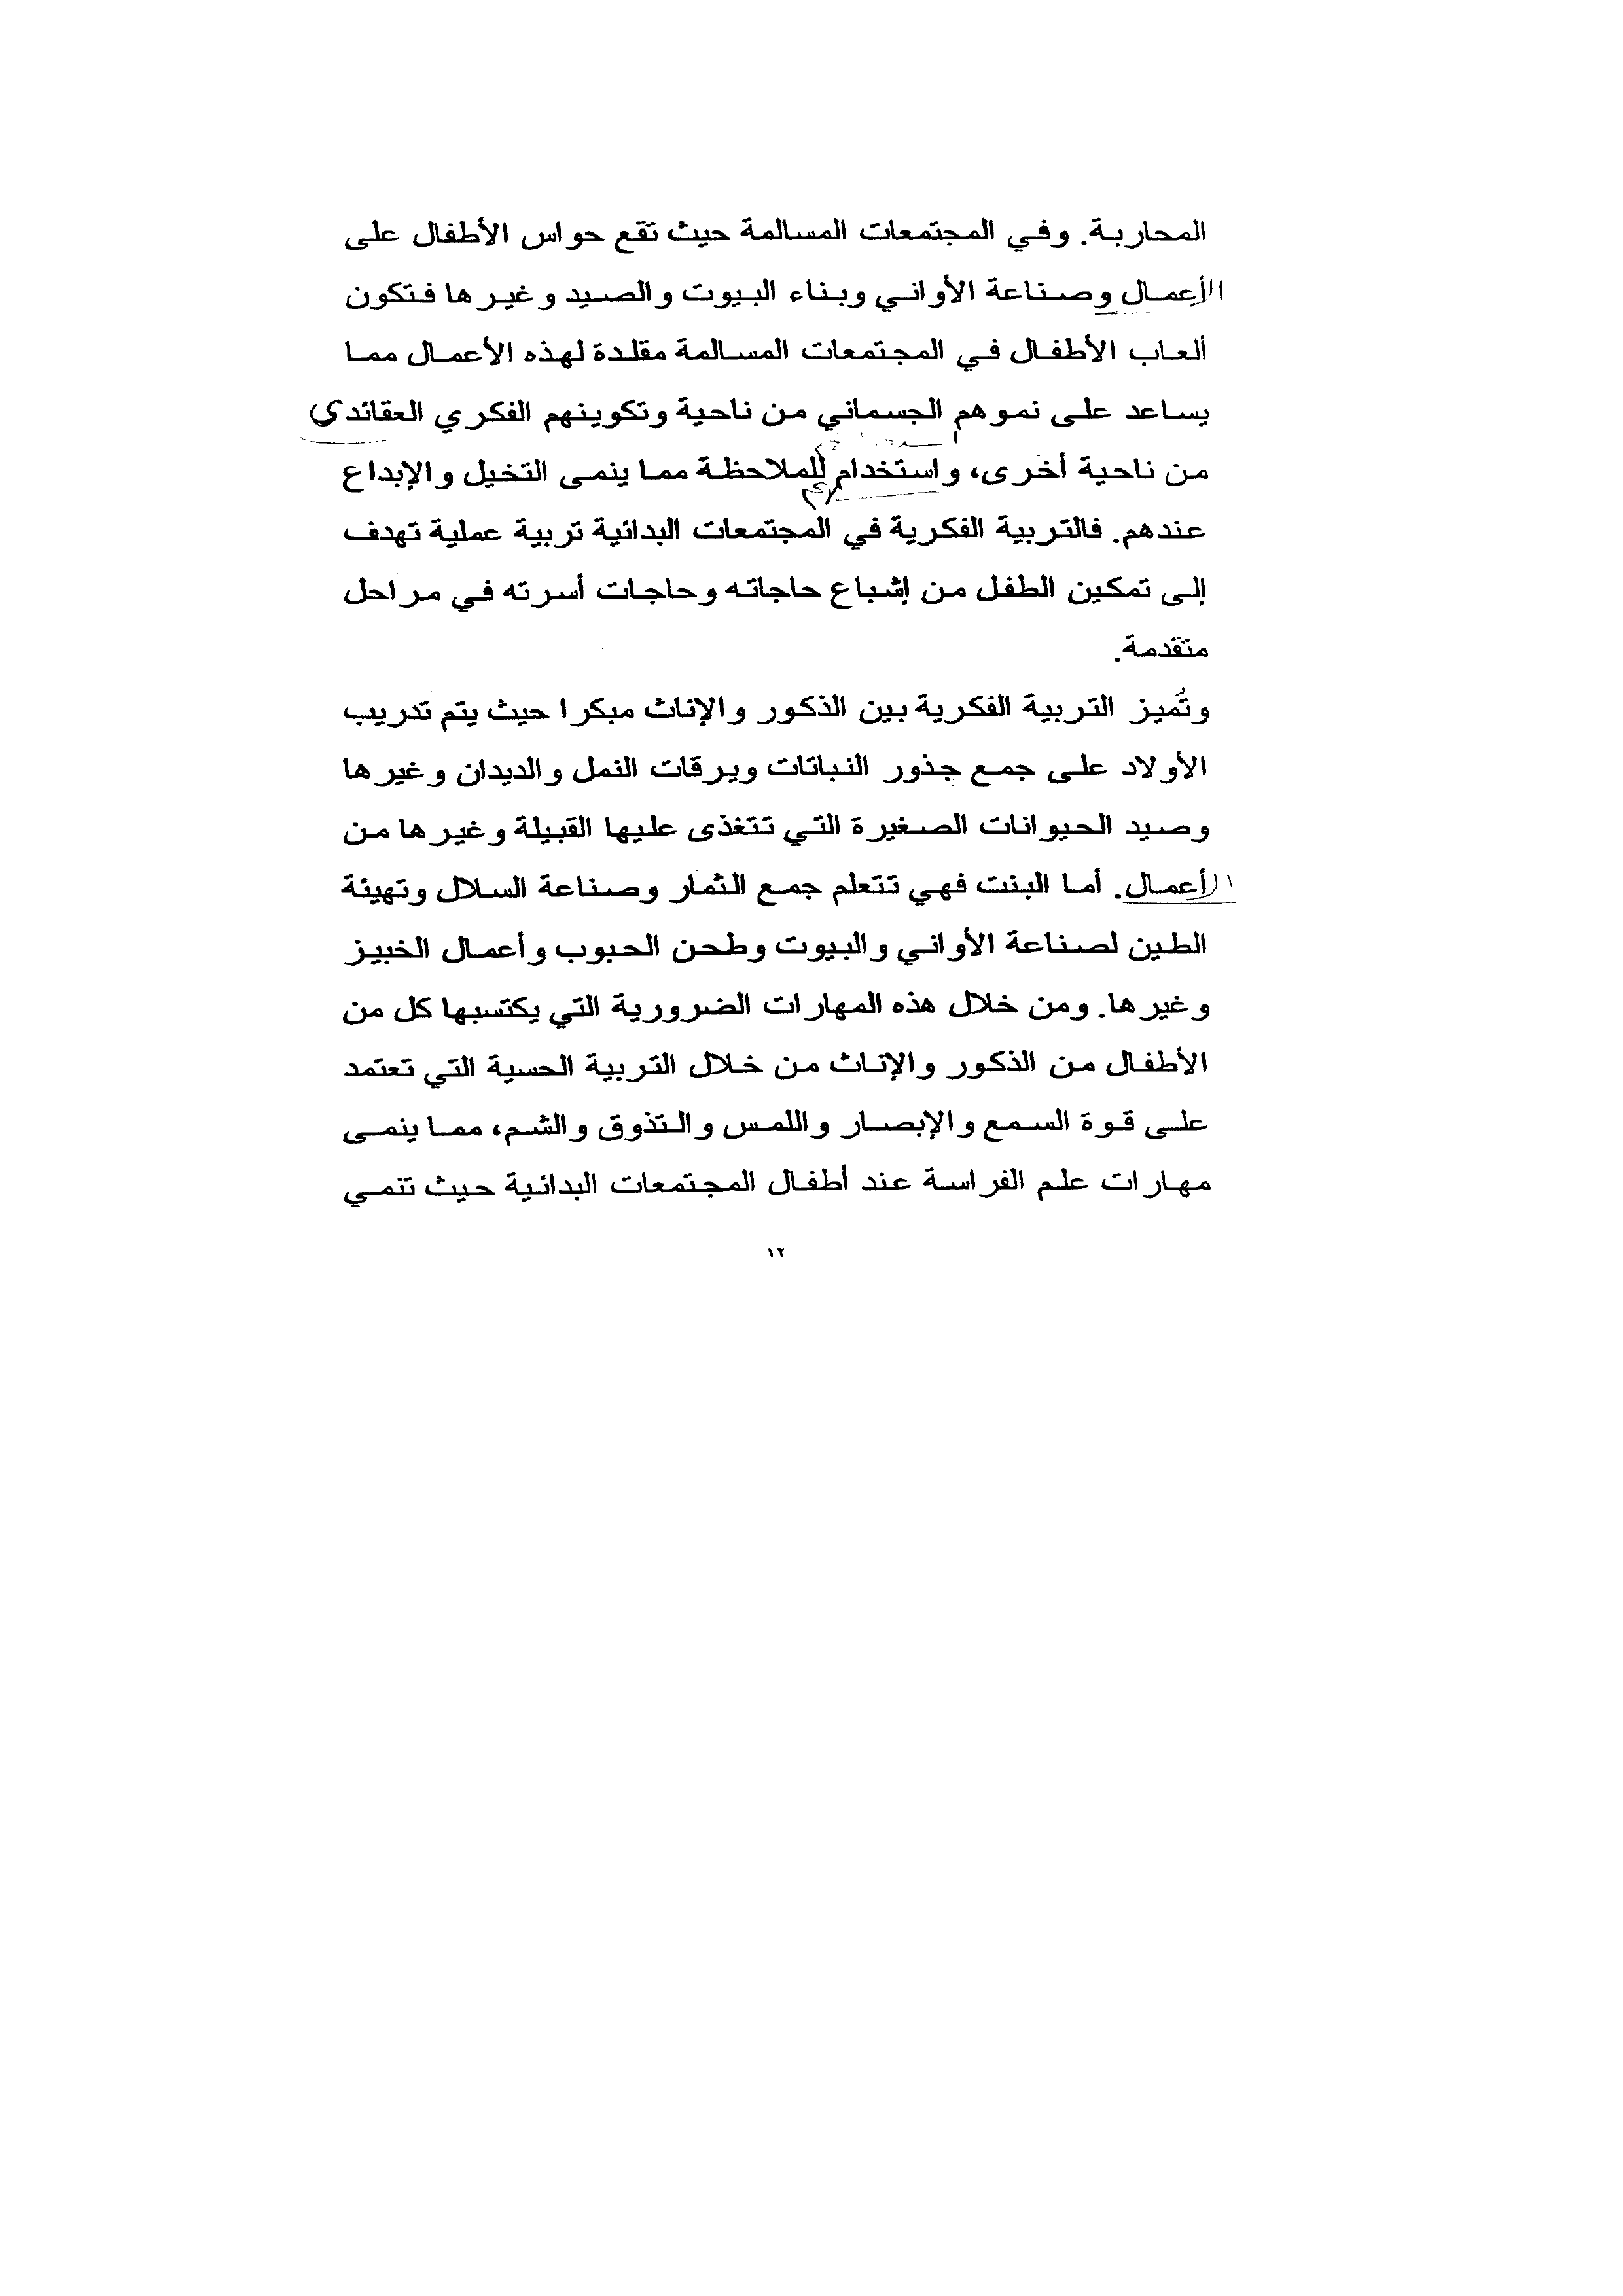 المحاربة. وفي المجتمعات المسالمة حيث تقع حواس الأطفال على
الأعمال وصناعة الأواني وبناء البيوت والصيد وغيرها فتكون
ألعاب الأطفال في المجتمعات المسالمة مقلدة لهذه الأعمال مما
يساعد على نموهم الجسماني من ناحية وتكوينهم الفكري العقائدي
من ناحية أخرى، واستخدام للملاحظة مما ينمى التخيل والإبداع
عندهم. فالتربية الفكرية في المجتمعات البدائية تربية عملية تهدف
إلى تمكين الطفل من إشباع حاجاته وحاجات أسرته في مراحل
متقدمة.
وتُميز التربية الفكرية بين الذكور والإناث مبكرا حيث يتم تدريب
الأولاد على جمع جذور النباتات ويرقات النمل والديدان وغيرها
وصيد الحيوانات الصغيرة التي تتغذى عليها القبيلة وغيرها من
الأعمال. أما البنت فهي تتعلم جمع الثمار وصناعة السلال وتهيئة
الطين لصناعة الأواني والبيوت وطحن الحبوب وأعمال الخبيز
وغيرها. ومن خلال هذه المهارات الضرورية التي يكتسبها كل من
الأطفال من الذكور والإناث من خلال التربية الحسية التي تعتمد
على قوة السمع والإبصار واللمس والتذوق والشم، مما ينمى
مهارات علم الفراسة عند أطفال المجتمعات البدائية حيث تنمي
١٢